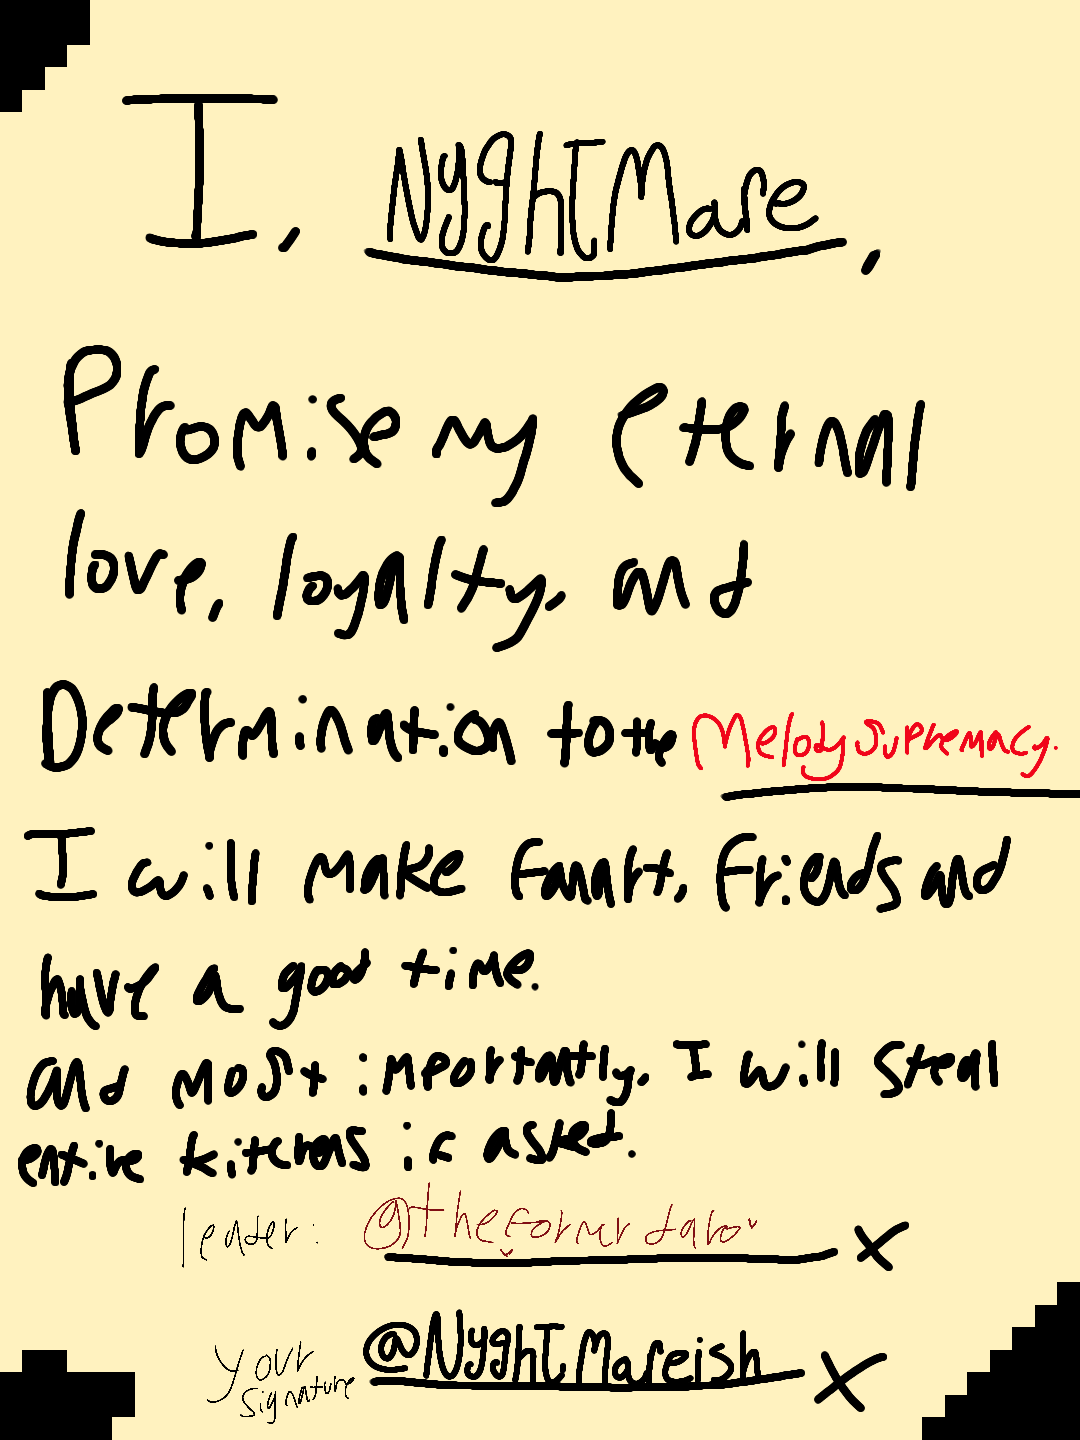 I, NyghtMare,
Promise my eternal
love, loyalty, and
Determination to the Melody Supremacy.
I will make Fanart, Friends and
have a good time.
and most importantly, I will steal
entire kitchens if asked.
leader: X
Your Signature @NyghtMareish X